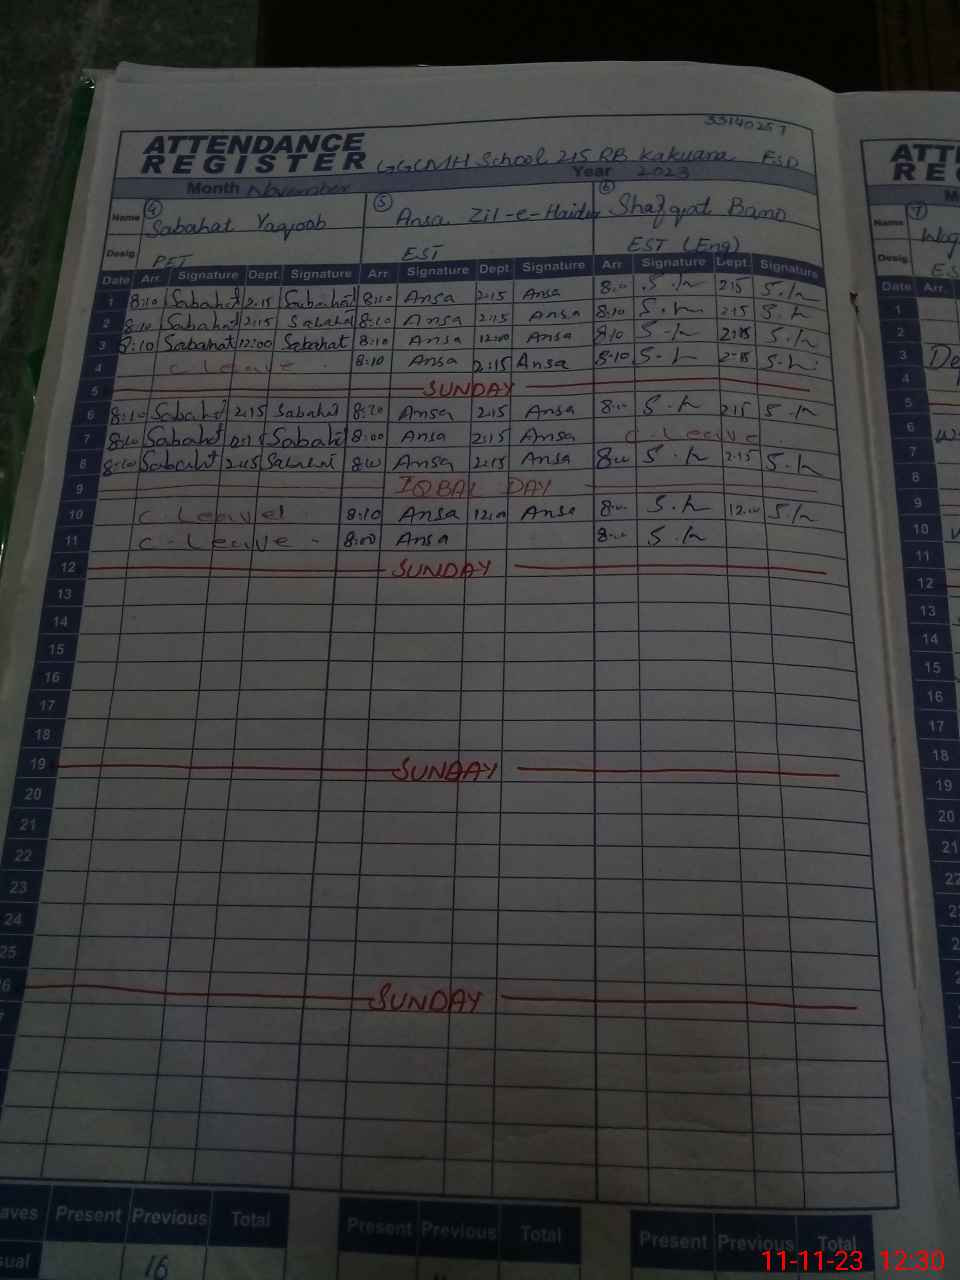 33140257
ATTENDANCE
REGISTER GGCMH School 215 RB Kakuana FSD
Month November Year 2023
Name ④ Sabahat Yaqoob ⑤ Ansa Zil-e-Haider ⑥ Shafqat Bano
Desig. PET EST EST (Eng)
Date Arr. Signature Dept. Signature Arr. Signature Dept. Signature Arr. Signature Dept. Signature
1 8:10 Sabahat 2:15 Sabahat 8:10 Ansa 2:15 Ansa 8:10 S.h 2:15 S.h
2 8:10 Sabahat 2:15 Sabahat 8:10 Ansa 2:15 Ansa 8:10 S.h 2:15 S.h
3 8:10 Sabahat 12:00 Sabahat 8:10 Ansa 12:00 Ansa 8:10 S.h S.h
4 C leave. 8:10 Ansa 2:15 Ansa 8:10 S.h 2:15 S.h
5 SUNDAY
6 8:10 Sabahat 2:15 Sabahat 8:10 Ansa 2:15 Ansa 8:00 S.h 2:15 S.h
7 8:10 Sabahat 2:15 Sabahat 8:00 Ansa 2:15 Ansa C Leave.
8 8:10 Sabahat 2:15 Sabahat 8:00 Ansa 2:15 Ansa 8:00 S.h 2:15 S.h
9 IQBAL DAY
10 C. Leave 8:10 Ansa 12:00 Ansa 8:00 S.h 12:00 S.h
11 C. Leave. 8:00 Ansa 8:00 S.h
12 SUNDAY
13
14
15
16
17
18
19 SUNDAY
20
21
22
23
24
25
6 SUNDAY
7
aves Present Previous Total Present Previous Total Present Previous Total
sual 16
ATT
RE
M
Name ⑦
Desig.
Date Arr.
1
2
3
4
5
6
7
8
9
10
11
12
13
14
15
16
17
18
19
20
21
22
23
2
2
11-11-23 12:30